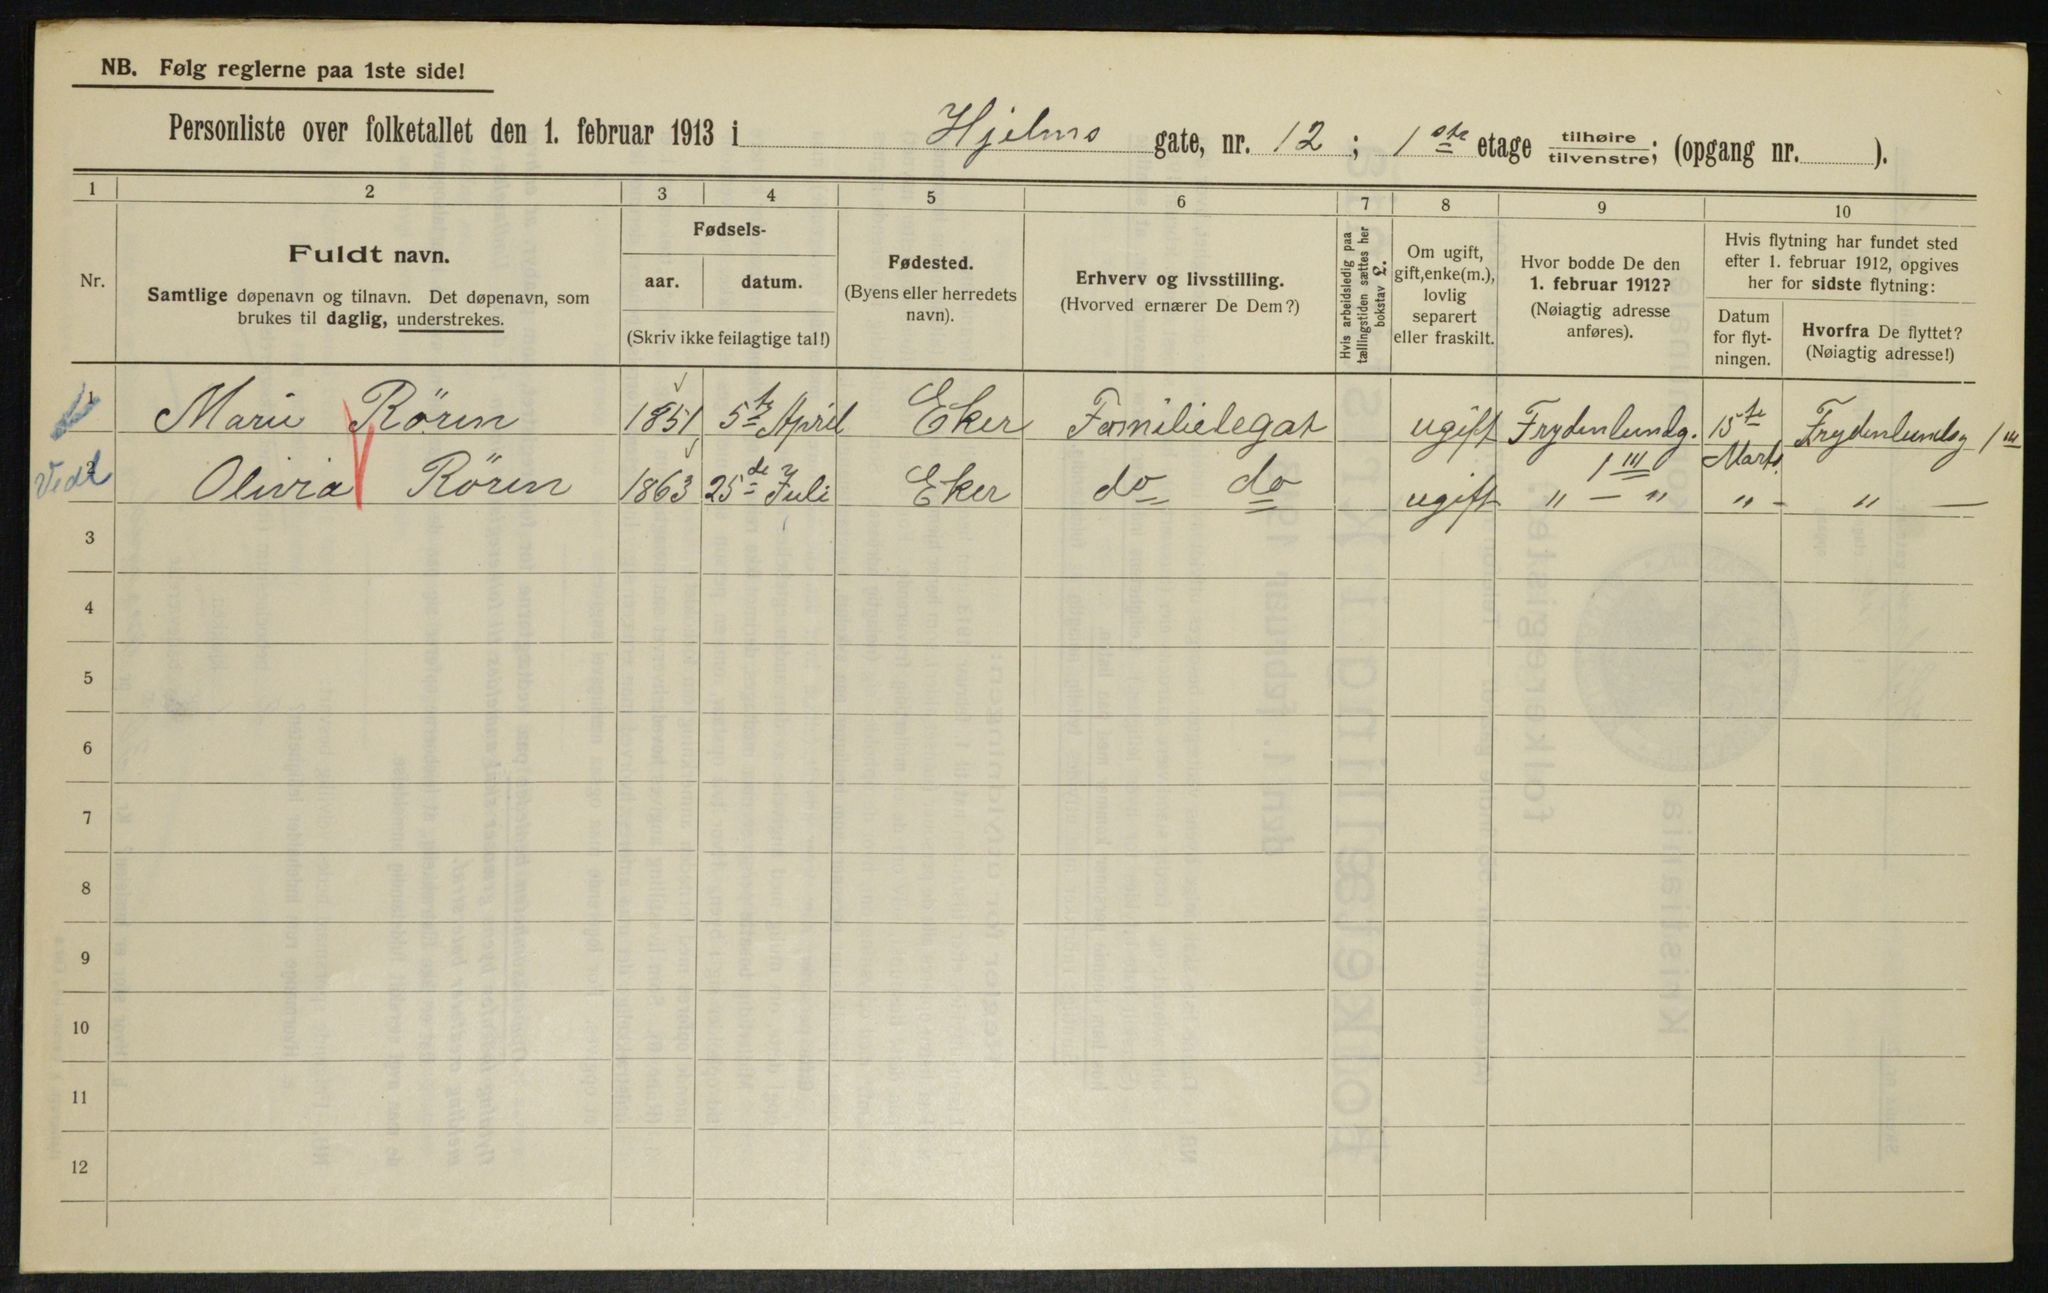 NB. Følg reglerne paa 1ste side!
Personliste over folketallet den 1. februar 1913 i Hjelms gate, nr. 12 ; 1ste etage tilhøire / tilvenstre ; (opgang nr. ).
1 2 3 4 5 6 7 8 9 10
Nr.
Fuldt navn.
Samtlige døpenavn og tilnavn. Det døpenavn, som
brukes til daglig, understrekes.
Fødsels-
aar. datum.
(Skriv ikke feilagtige tal!)
Fødested.
(Byens eller herredets
navn).
Erhverv og livsstilling.
(Hvorved ernærer De Dem?)
Hvis arbeidsledig paa
tællingstiden sættes her
bokstav L.
Om ugift,
gift, enke(m.),
lovlig
separert
eller fraskilt.
Hvor bodde De den
1. februar 1912?
(Nøiagtig adresse
anføres).
Hvis flytning har fundet sted
efter 1. februar 1912, opgives
her for sidste flytning:
Datum
for flyt-
ningen.
Hvorfra De flyttet?
(Nøiagtig adresse!)
1 Marie Rören 1851 5te April Eker Familielegat ugift Frydenlundg. 1 III 15te Marts Frydenlundsg 1 III
2 Olivia Rören 1863 25de Juli Eker do do ugift " — " " - " —
3
4
5
6
7
8
9
10
11
12